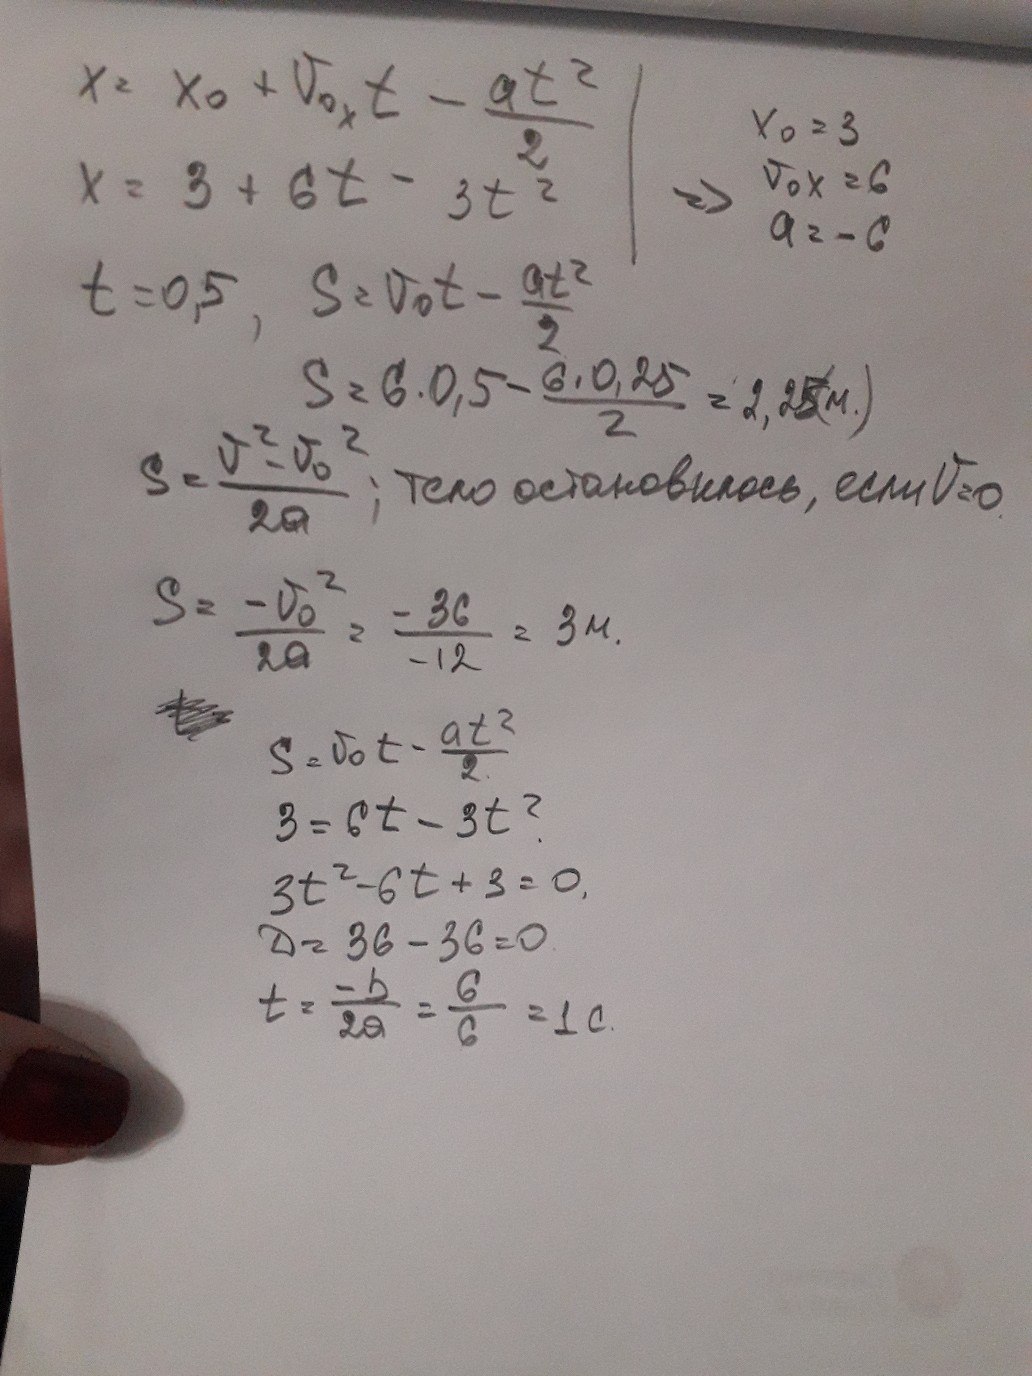 x = x₀ + v₀ₓt - at²/2
x = 3 + 6t - 3t²
=> x₀ = 3
v₀x = 6
a = -6
t = 0,5, S = v₀t - at²/2
S = 6·0,5 - 6·0,25/2 = 2,25(м.)
S = v² - v₀²/2a ; тело остановилось, если v=0.
S = -v₀²/2a = -36/-12 = 3м.
S = v₀t - at²/2.
3 = 6t - 3t².
3t² - 6t + 3 = 0,
D = 36 - 36 = 0.
t = -b/2a = 6/6 = 1 с.